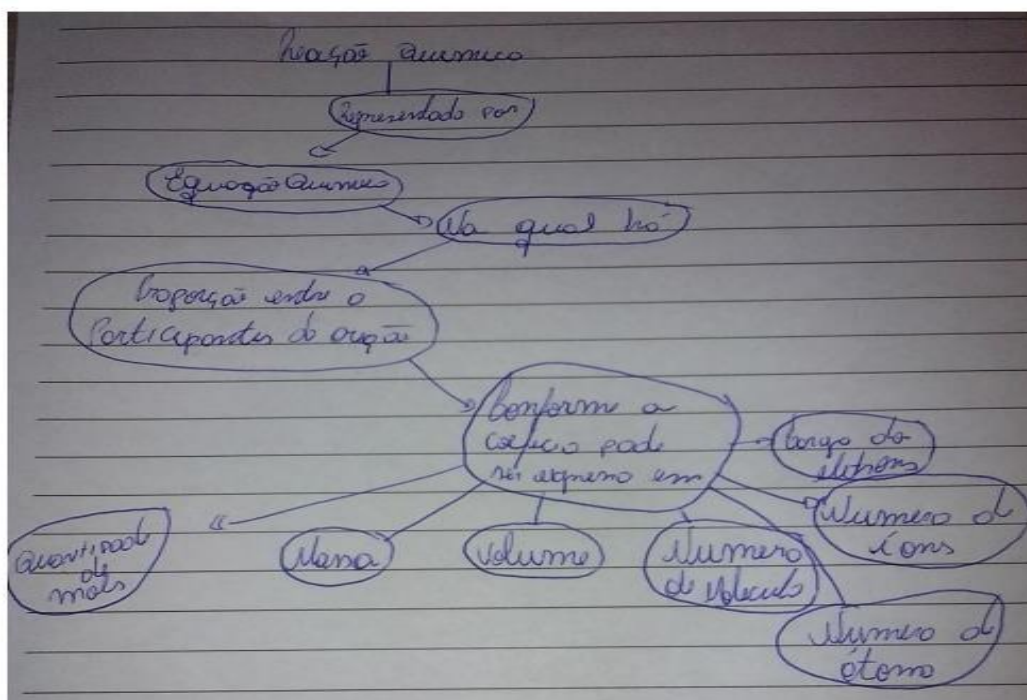 Reação Quimica
Representado por
Equação Quimica
Na qual há
Proporção entre o
Participantes do
Conforme a
pode
ser expresso em
Carga do
eletrons
Quantidade
de
mols
Massa
Volume
Numero
de Molecula
Numero de
íons
Numero de
átomo